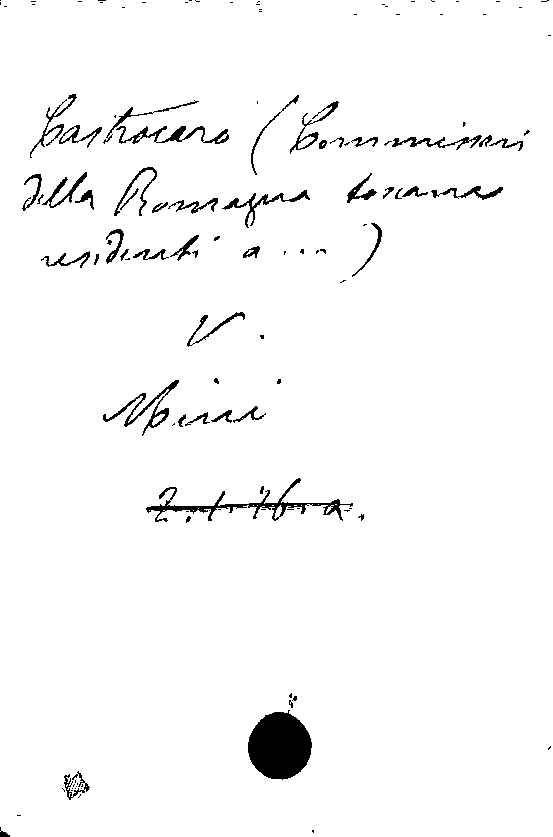 Castrocaro (Commissari
della Romagna toscana
residenti a ...)
V.
Mini
2.1.76.a.